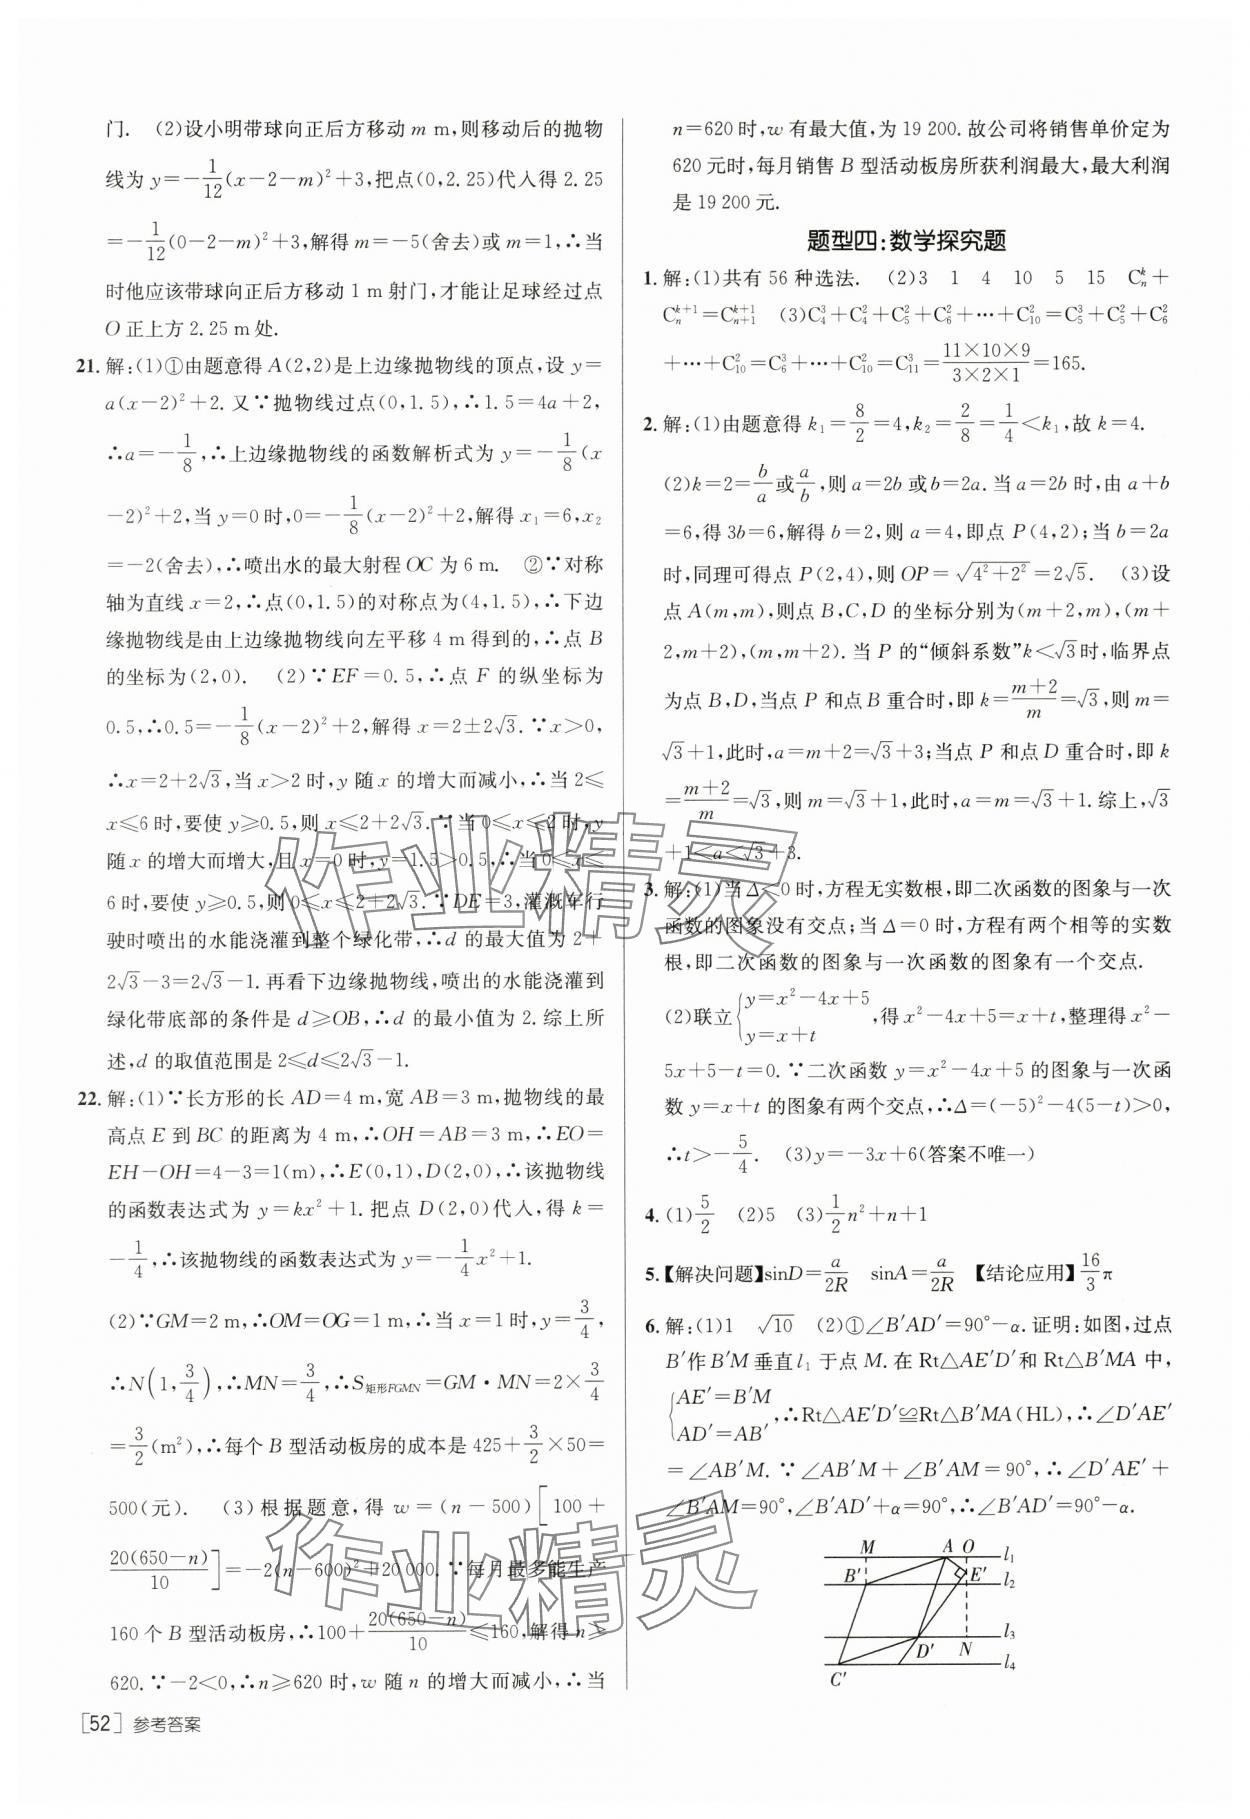 门.　(2)设小明带球向正后方移动 m m,则移动后的抛物
线为 y=-1/12(x-2-m)²+3,把点(0,2.25)代入得 2.25
=-1/12(0-2-m)²+3,解得 m=-5(舍去)或 m=1,∴当
时他应该带球向正后方移动 1 m 射门,才能让足球经过点
O 正上方 2.25 m 处.
21. 解:(1)①由题意得 A(2,2)是上边缘抛物线的顶点,设 y=
a(x-2)²+2.又∵抛物线过点(0,1.5),∴1.5=4a+2,
∴a=-1/8,∴上边缘抛物线的函数解析式为 y=-1/8(x
-2)²+2,当 y=0 时,0=-1/8(x-2)²+2,解得 x₁=6,x₂
=-2(舍去),∴喷出水的最大射程 OC 为 6 m.　②∵对称
轴为直线 x=2,∴点(0,1.5)的对称点为(4,1.5),∴下边
缘抛物线是由上边缘抛物线向左平移 4 m 得到的,∴点 B
的坐标为(2,0).　(2)∵EF=0.5,∴点 F 的纵坐标为
0.5,∴0.5=-1/8(x-2)²+2,解得 x=2±2√3.∵x>0,
∴x=2+2√3,当 x>2 时,y 随 x 的增大而减小,∴当 2≤
x≤6 时,要使 y≥0.5,则 x≤2+2√3.∵当 0≤x≤2 时,y
随 x 的增大而增大,且 x=0 时,y=1.5>0.5,∴当 0≤x≤
6 时,要使 y≥0.5,则 0≤x≤2+2√3.∵DE=3,灌溉车行
驶时喷出的水能浇灌到整个绿化带,∴d 的最大值为 2+
2√3-3=2√3-1.再看下边缘抛物线,喷出的水能浇灌到
绿化带底部的条件是 d≥OB,∴d 的最小值为 2.综上所
述,d 的取值范围是 2≤d≤2√3-1.
22. 解:(1)∵长方形的长 AD=4 m,宽 AB=3 m,抛物线的最
高点 E 到 BC 的距离为 4 m,∴OH=AB=3 m,∴EO=
EH-OH=4-3=1(m),∴E(0,1),D(2,0),∴该抛物线
的函数表达式为 y=kx²+1.把点 D(2,0)代入,得 k=
-1/4,∴该抛物线的函数表达式为 y=-1/4x²+1.
(2)∵GM=2 m,∴OM=OG=1 m,∴当 x=1 时,y=3/4,
∴N(1,3/4),∴MN=3/4,∴S矩形FGMN=GM·MN=2×3/4
=3/2(m²),∴每个 B 型活动板房的成本是 425+3/2×50=
500(元).　(3)根据题意,得 w=(n-500)[100+
20(650-n)/10]=-2(n-600)²+20 000.∵每月最多能生产
160 个 B 型活动板房,∴100+20(650-n)/10≤160,解得 n≥
620.∵-2<0,∴n≥620 时,w 随 n 的增大而减小,∴当
[52] 参考答案
n=620 时,w 有最大值,为 19 200.故公司将销售单价定为
620 元时,每月销售 B 型活动板房所获利润最大,最大利润
是 19 200 元.
题型四:数学探究题
1. 解:(1)共有 56 种选法.　(2)3　1　4　10　5　15　Cₙᵏ+
Cₙᵏ⁺¹=Cₙ₊₁ᵏ⁺¹　(3)C₄³+C₄²+C₅²+C₆²+…+C₁₀²=C₅³+C₅²+C₆²
+…+C₁₀²=C₆³+…+C₁₀²=C₁₁³=11×10×9/3×2×1=165.
2. 解:(1)由题意得 k₁=8/2=4,k₂=2/8=1/4<k₁,故 k=4.
(2)k=2=b/a或a/b,则 a=2b 或 b=2a.当 a=2b 时,由 a+b
=6,得 3b=6,解得 b=2,则 a=4,即点 P(4,2);当 b=2a
时,同理可得点 P(2,4),则 OP=√(4²+2²)=2√5.　(3)设
点 A(m,m),则点 B,C,D 的坐标分别为(m+2,m),(m+
2,m+2),(m,m+2).当 P 的“倾斜系数”k<√3时,临界点
为点 B,D,当点 P 和点 B 重合时,即 k=m+2/m=√3,则 m=
√3+1,此时,a=m+2=√3+3;当点 P 和点 D 重合时,即 k
=m+2/m=√3,则 m=√3+1,此时,a=m=√3+1.综上,√3
+1<a<√3+3.
3. 解:(1)当 Δ<0 时,方程无实数根,即二次函数的图象与一次
函数的图象没有交点;当 Δ=0 时,方程有两个相等的实数
根,即二次函数的图象与一次函数的图象有一个交点.
(2)联立{y=x²-4x+5
y=x+t,得 x²-4x+5=x+t,整理得 x²-
5x+5-t=0.∵二次函数 y=x²-4x+5 的图象与一次函
数 y=x+t 的图象有两个交点,∴Δ=(-5)²-4(5-t)>0,
∴t>-5/4.　(3)y=-3x+6(答案不唯一)
4. (1)5/2　(2)5　(3)1/2n²+n+1
5.【解决问题】sinD=a/2R　sinA=a/2R　【结论应用】16/3π
6. 解:(1)1　√10　(2)①∠B′AD′=90°-α.证明:如图,过点
B′作 B′M 垂直 l₁ 于点 M.在 Rt△AE′D′和 Rt△B′MA 中,
{AE′=B′M
AD′=AB′,∴Rt△AE′D′≌Rt△B′MA(HL),∴∠D′AE′
=∠AB′M.∵∠AB′M+∠B′AM=90°,∴∠D′AE′+
∠B′AM=90°,∴∠B′AD′+α=90°,∴∠B′AD′=90°-α.
M A O l₁
B′ E′ l₂
D′ N l₃
C′ l₄
作业精灵
作业精灵